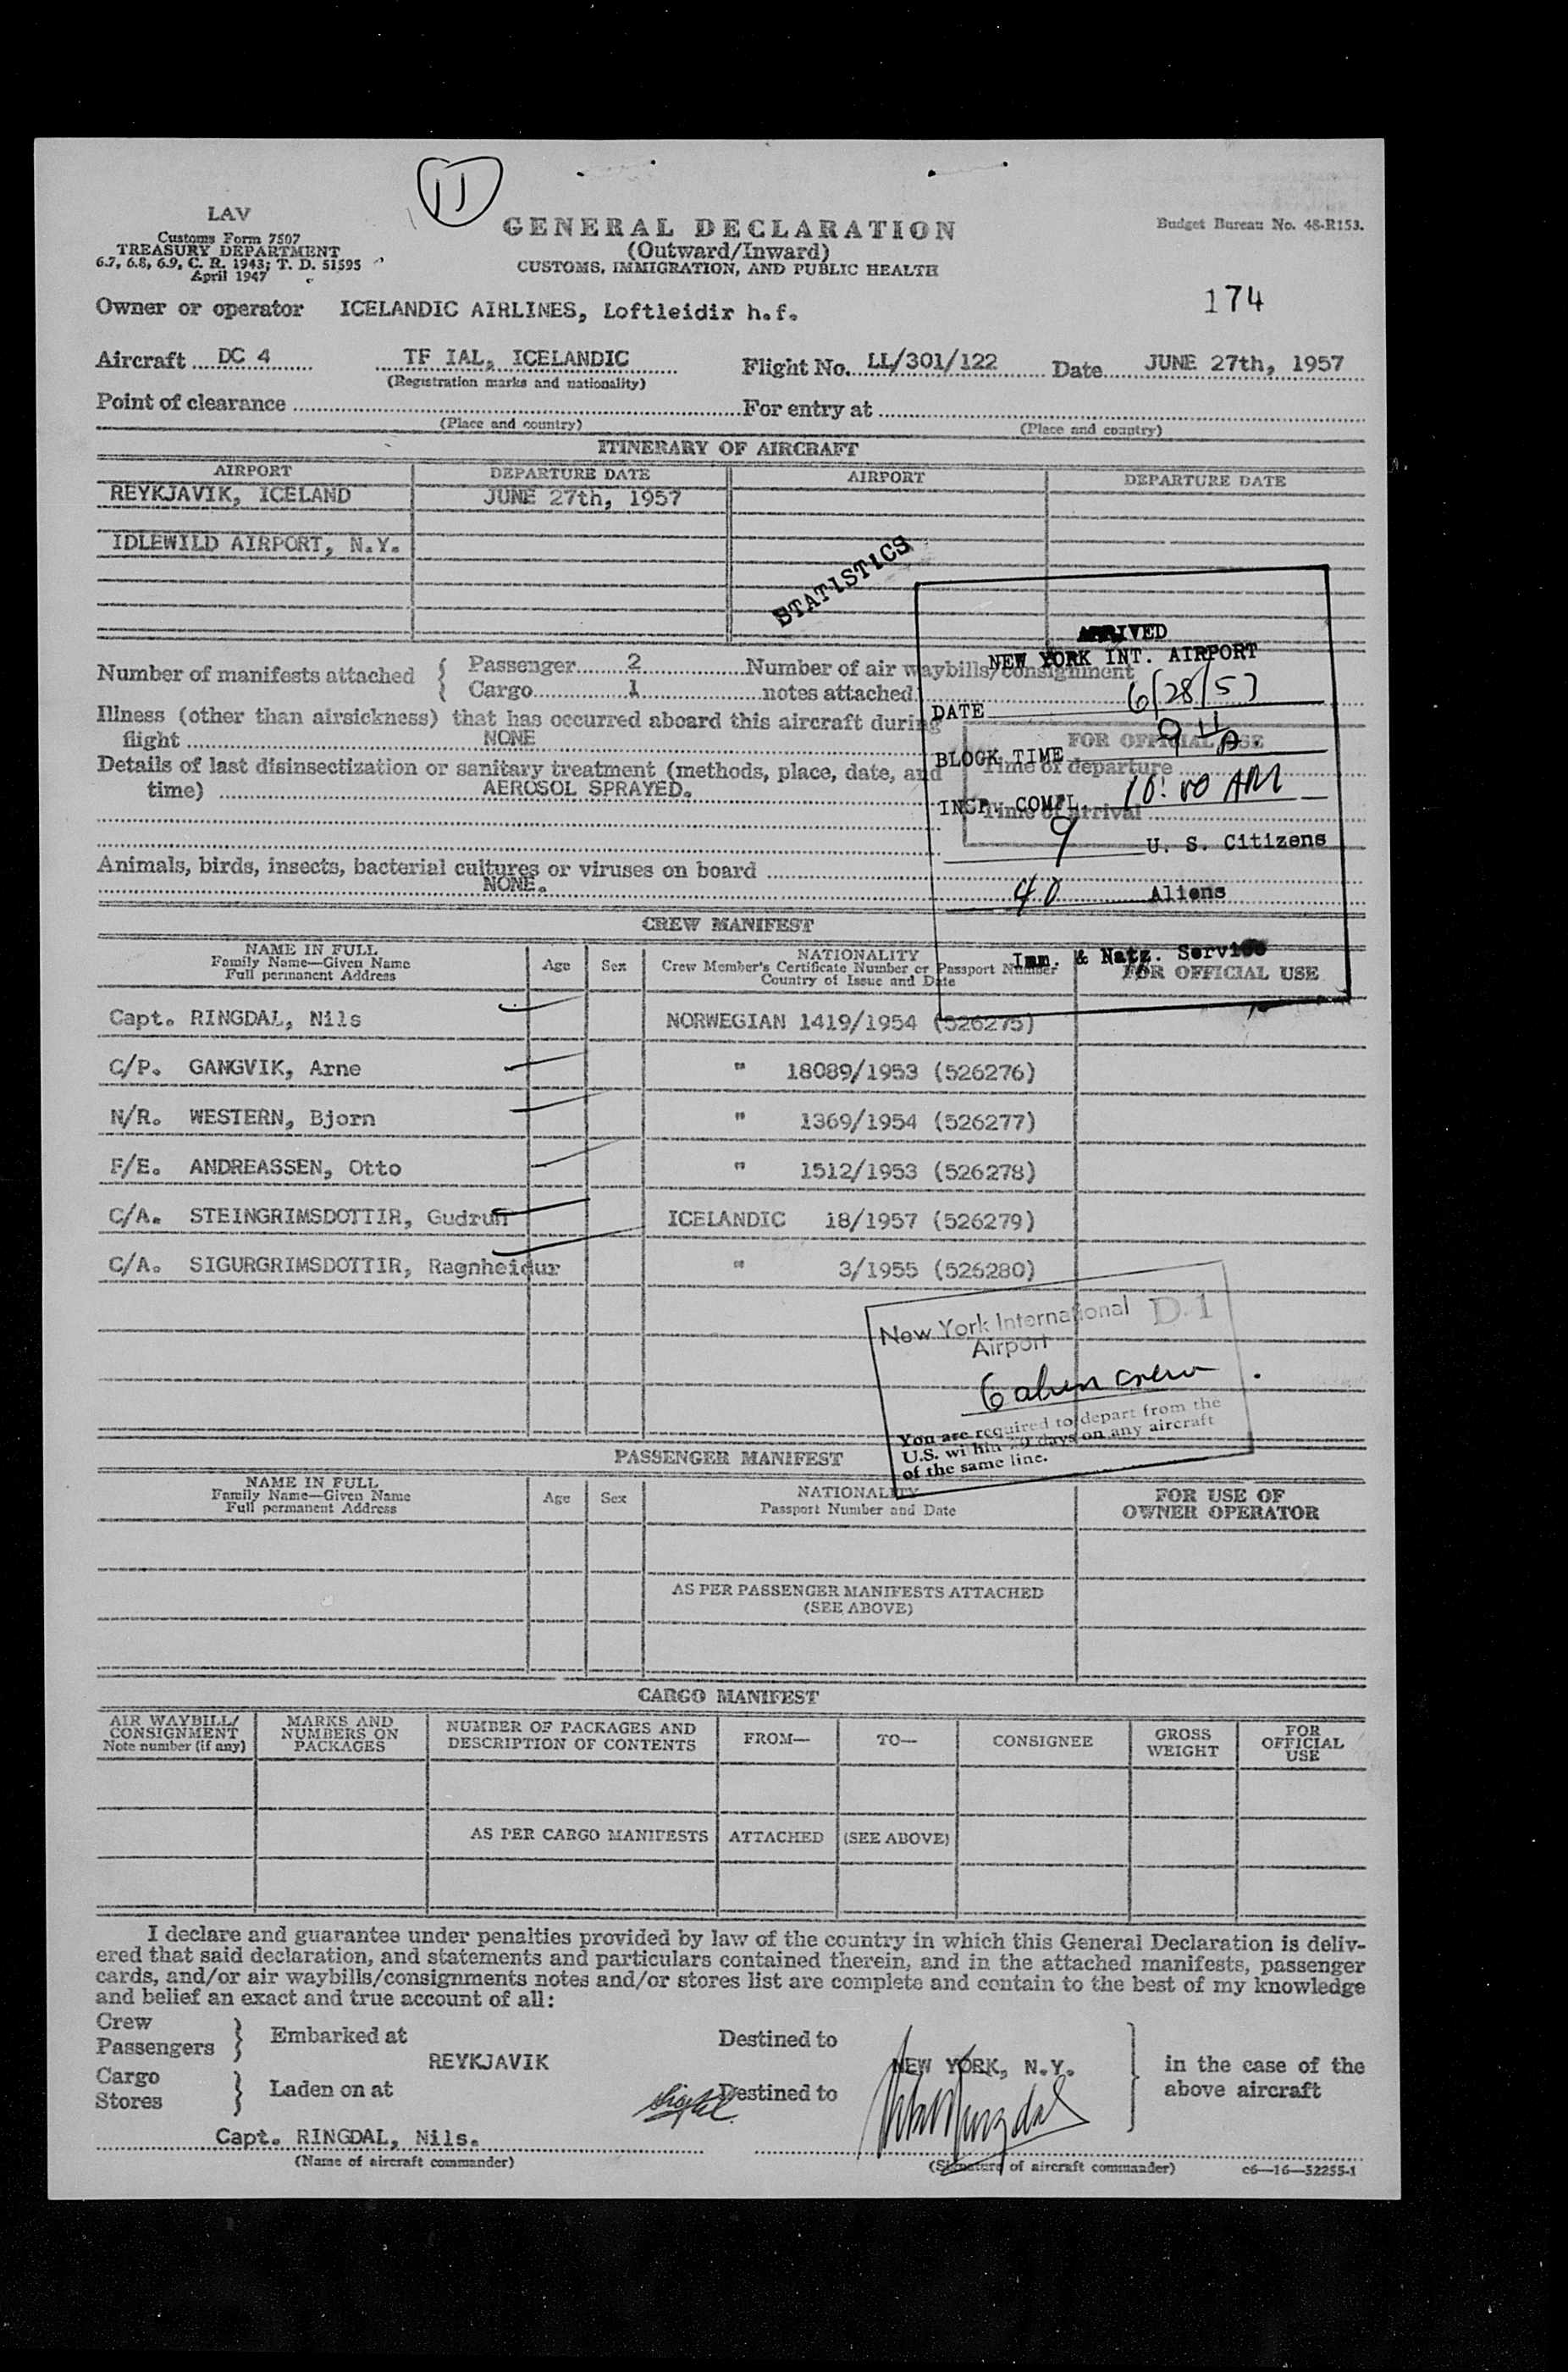 11
LAV
Customs Form 7507
TREASURY DEPARTMENT
6.7, 6.8, 6.9, C. R. 1943; T. D. 51595
April 1947
GENERAL DECLARATION
(Outward/Inward)
CUSTOMS, IMMIGRATION, AND PUBLIC HEALTH
Budget Bureau No. 48-R153.
174
Owner or operator ICELANDIC AIRLINES, Loftleidir h.f.
Aircraft DC 4 TF IAL, ICELANDIC Flight No. LL/301/122 Date JUNE 27th, 1957
(Registration marks and nationality)
Point of clearance For entry at
(Place and country) (Place and country)
ITINERARY OF AIRCRAFT
AIRPORT DEPARTURE DATE AIRPORT DEPARTURE DATE
REYKJAVIK, ICELAND JUNE 27th, 1957
IDLEWILD AIRPORT, N.Y.
STATISTICS
ARRIVED
NEW YORK INT. AIRPORT
DATE 6/28/57
BLOCK TIME 9 A.
INSP. COMPL. 10:00 AM
9 U. S. Citizens
40 Aliens
Imm. & Natz. Service
Number of manifests attached { Passenger 2 Number of air waybills/consignment
Cargo 1 notes attached
Illness (other than airsickness) that has occurred aboard this aircraft during
flight NONE
FOR OFFICIAL USE
Time of departure
Time of arrival
Details of last disinsectization or sanitary treatment (methods, place, date, and
time) AEROSOL SPRAYED.
Animals, birds, insects, bacterial cultures or viruses on board
NONE.
CREW MANIFEST
NAME IN FULL
Family Name—Given Name
Full permanent Address
Age Sex
NATIONALITY
Crew Member's Certificate Number or Passport Number
Country of Issue and Date
FOR OFFICIAL USE
Capt. RINGDAL, Nils NORWEGIAN 1419/1954 (526275)
C/P. GANGVIK, Arne " 18089/1953 (526276)
N/R. WESTERN, Bjorn " 1369/1954 (526277)
F/E. ANDREASSEN, Otto " 1512/1953 (526278)
C/A. STEINGRIMSDOTTIR, Gudrun ICELANDIC 18/1957 (526279)
C/A. SIGURGRIMSDOTTIR, Ragnheidur " 3/1955 (526280)
New York International D-1
Airport
6 alien crew
You are required to depart from the
U.S. within 29 days on any aircraft
of the same line.
PASSENGER MANIFEST
NAME IN FULL
Family Name—Given Name
Full permanent Address
Age Sex
NATIONALITY
Passport Number and Date
FOR USE OF
OWNER OPERATOR
AS PER PASSENGER MANIFESTS ATTACHED
(SEE ABOVE)
CARGO MANIFEST
AIR WAYBILL/
CONSIGNMENT
Note number (if any)
MARKS AND
NUMBERS ON
PACKAGES
NUMBER OF PACKAGES AND
DESCRIPTION OF CONTENTS
FROM—
TO—
CONSIGNEE
GROSS
WEIGHT
FOR
OFFICIAL
USE
AS PER CARGO MANIFESTS ATTACHED (SEE ABOVE)
I declare and guarantee under penalties provided by law of the country in which this General Declaration is deliv-
ered that said declaration, and statements and particulars contained therein, and in the attached manifests, passenger
cards, and/or air waybills/consignments notes and/or stores list are complete and contain to the best of my knowledge
and belief an exact and true account of all:
Crew
Passengers } Embarked at Destined to
REYKJAVIK NEW YORK, N.Y. } in the case of the
above aircraft
Cargo
Stores } Laden on at Destined to
Capt. RINGDAL, Nils.
(Name of aircraft commander) (Signature of aircraft commander) c6—16—52255-1